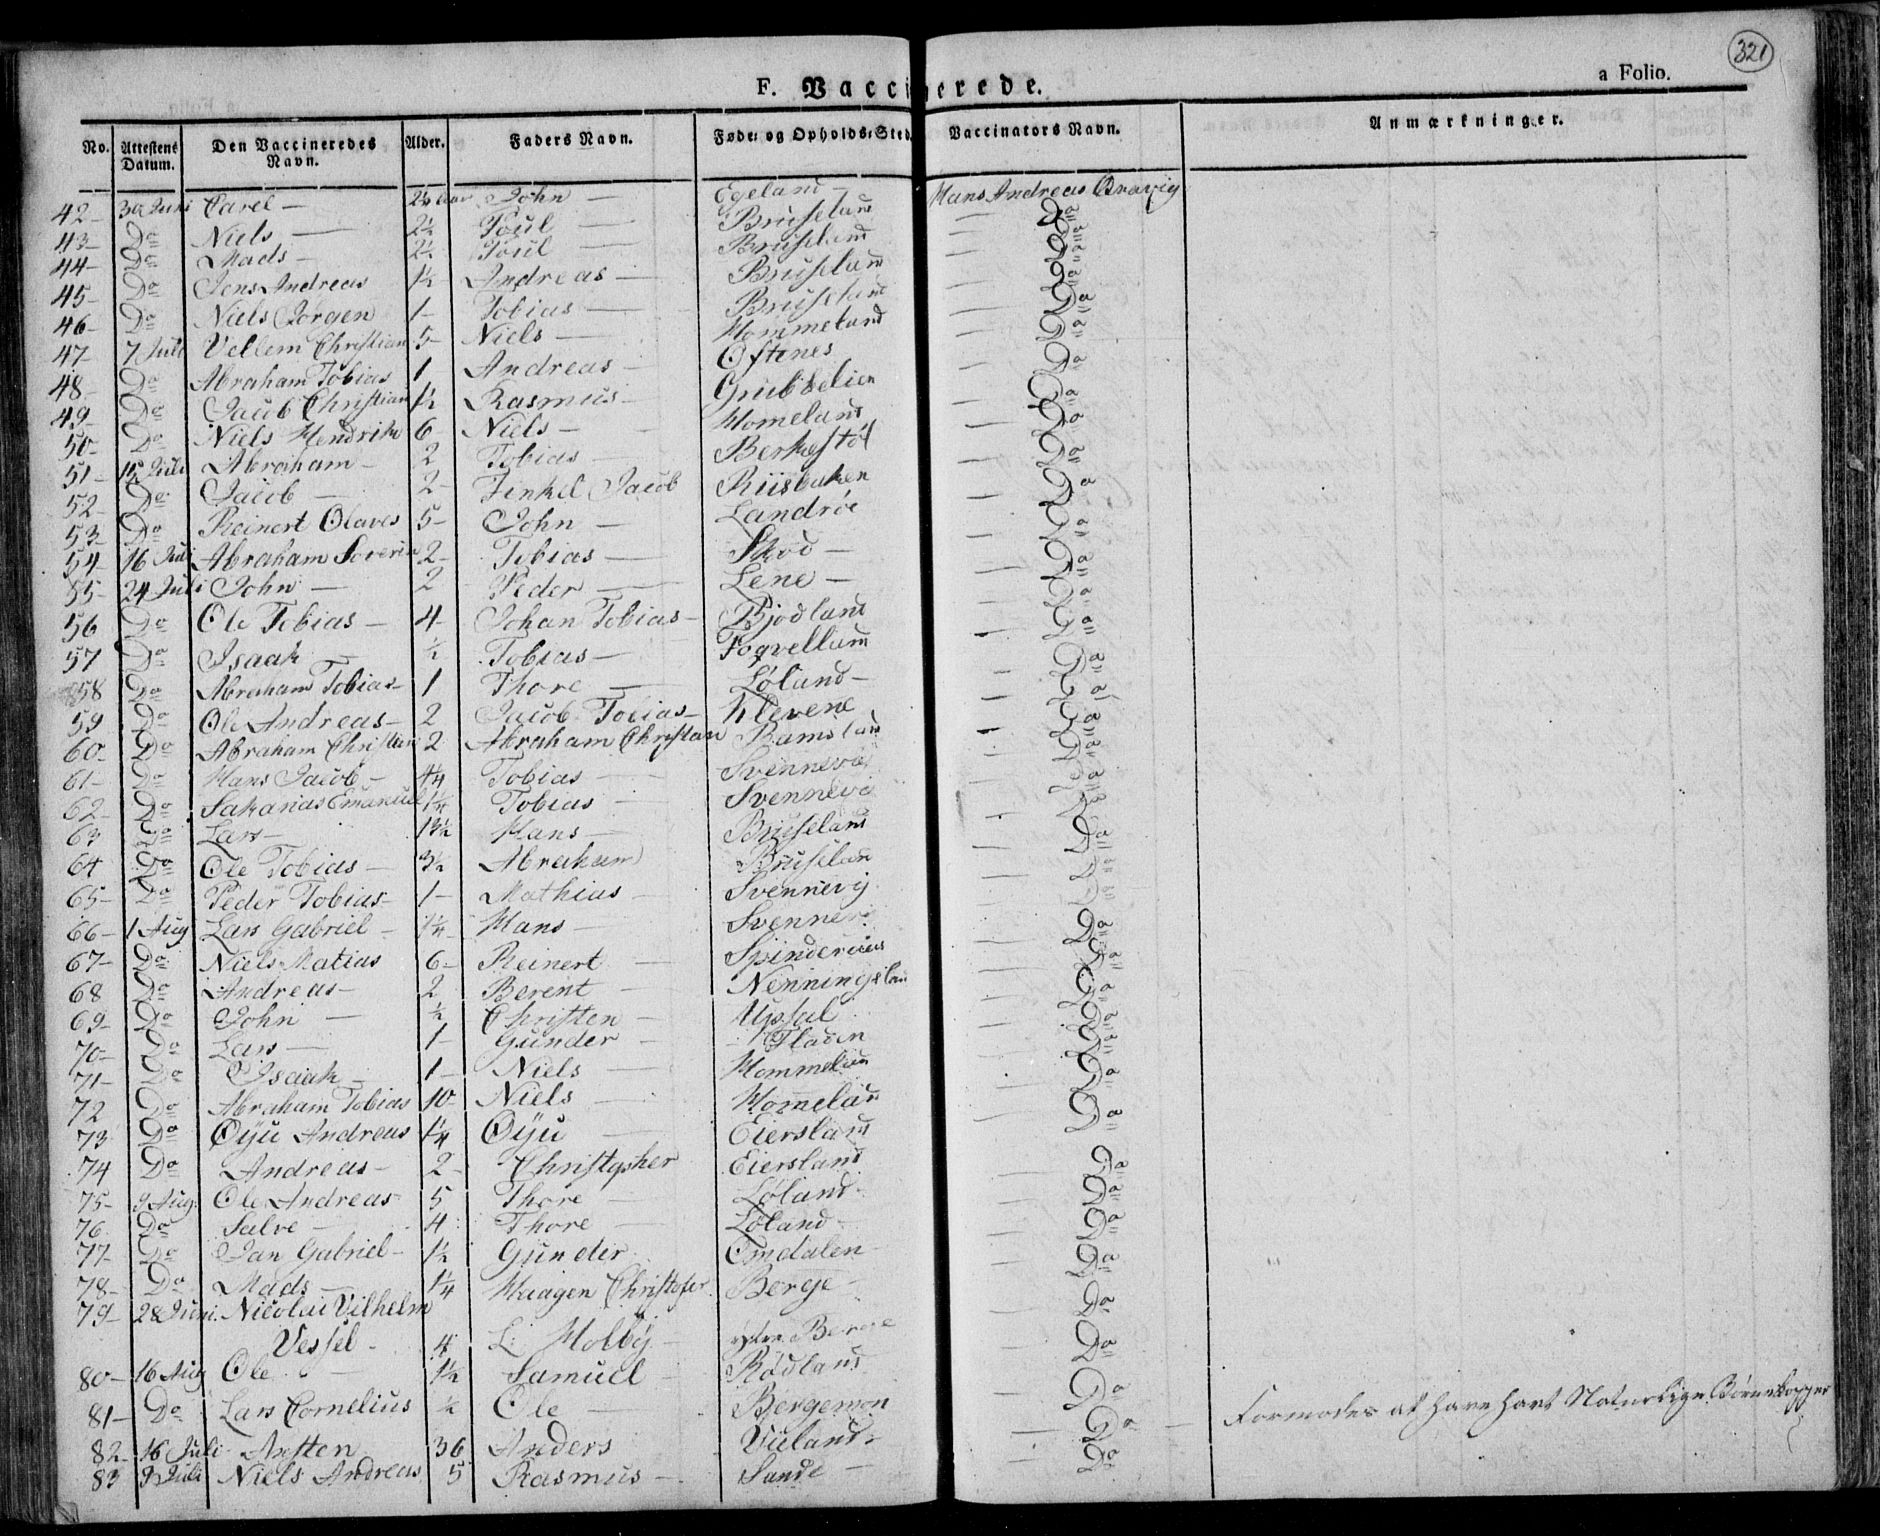 321
F. Vaccinerede.
a Folio.
No. Attestens Datum. Den Vaccineredes Navn. Alder. Faders Navn. Føde- og Opholds-Sted Vaccinators Navn. Anmærkninger.
42- 30 Juni Carel - 2½ Aar John - Egeland - Hans Andreas Bravig
43- Do Niels - 2½ Poul - Bruseland - Do
44- Do Mads - 2½ Poul - Bruseland - Do
45- Do Jens Andreas 1½ Andreas - Bruseland - Do
46- Do Niels Jørgen 1- Tobias - Bruseland - Do
47- 7 Juli Vellem Christian 5- Niels - Hommeland - Do
48- Do Abraham Tobias 1 Andreas - Oftenes - Do
49- Do Jacob Christian 1½ Rasmus - Grubbelien - Do
50- Do Niels Hendrik 6- Niels - Homeland - Do
51- 15 Juli Abraham - 2 Tobias Berkestøl - Do
52- Do Jacob - 2- Jacob Riisbaken - Do
53- Do Reinert Olaves 5- John - Landrøe - Do
54- 16 Juli Abraham Soverin 2- Tobias - Skod - Do
55- 24 Juli John - 2 Peder - Lene - Do
56 Do Ole Tobias - 4- Johan Tobias - Bjodland - Do
57 Do Isaak - ½ Tobias - - Do
58 Do Abraham Tobias - 1 Thore - Løland - Do
59 Do Ole Andreas - 2 Jacob Tobias - Klevene - Do
60- Do Abraham Christian 2 Abraham Christian Ramsland - Do
61- Do Hans Jacob - 4¼ Tobias - Svennevig - Do
62- Do Sakarias Emanuel 1¼ Tobias - Svennevig - Do
63 Do Lars - 13½ Hans - Bruseland - Do
64 Do Ole Tobias - 3½ Abraham Bruseland - Do
65- Do Peder Tobias - 1- Mathias - Svennevig - Do
66- 1 Aug Lars Gabriel - 1¼ Hans - Svennevig - Do
67- Do Niels Matias 6- Reinert - - Do
68 Do Andreas - 2 Berent - Nenningsland - Do
69- Do John - ½ Christen - Upsal - Do
70- Do Lars - 1- Gunder - Fladen - Do
71- Do Isaak - 1- Niels - Hommeland - Do
72 Do Abraham Tobias 10- Niels - Homeland - Do
73 Do Øyu Andreas 1¼ Øyu - Eiersland - Do
74 Do Andreas - 2- Christopher Eiersland - Do
75- 9 Aug. Ole Andreas 5 Thore - Løland - Do
76 Do Salve - 4 Thore - Løland - Do
77- Do Jan Gabriel - 1½ Gunder Omdalen - Do
78- Do Mads - 1¼ Haagen Christofer Berge - Do
79- 28 Juni. Nicolai Vilhelm Do
Vessel - 4 L. Holby - ytre Berge Do
80- 16 Aug Ole - 1½ Samuel - Rødland Do
81- Do Lars Cornelius ½ Ole - Bergemon Do - Formodes at have havt Naturlige Børnekopper
82- 16 Juli Ansten 36 Anders Vieland - Do
83 9 Juli Niels Andreas 5 Rasmus - Sande -